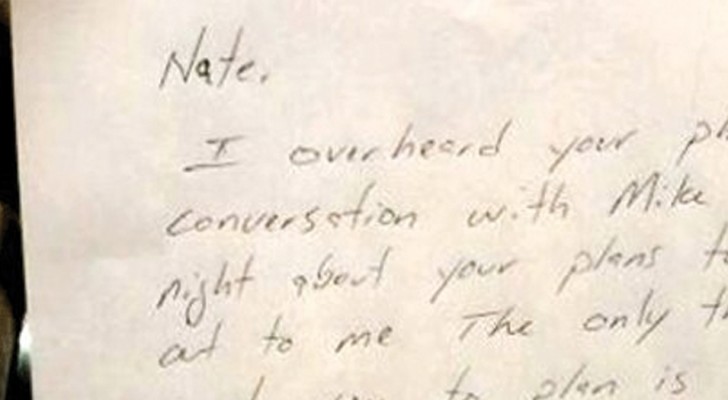 Nate.
I overheard your ph
conversation with Mike
night about your plans to
out to me The only th
to plan is